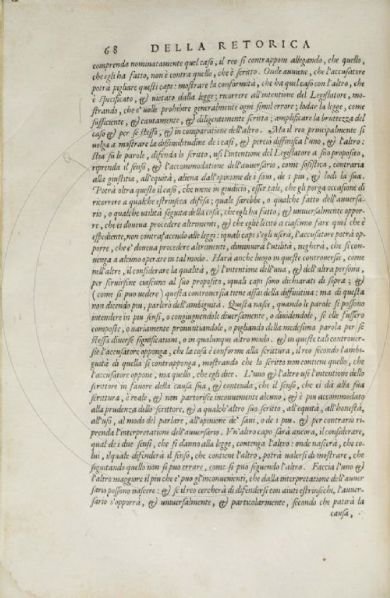 68 DELLA RETORICA
comprenda nominatamente quel caso, il reo si contrappon allegando, che quello,
che egli ha fatto, non è contra quello, che è scritto. Onde auuiene, che l'accusatore
potrà pigliare questi capi: mostrare la conformità, che ha quel caso con l'altro, che
è specificato, & uietato dalla legge; ricorrere all'intentione del Legislatore, mo-
strando, che e' uolle prohibere generalmente ogni simil errore; lodar la legge, come
sufficiente, & cautamente, & diligentemente scritta; amplificare la bruttezza del
caso & per se stesso, & in comparatione dell'altro. Ma il reo principalmente si
uolga a mostrare la dissimilitudine de i casi, & perciò diffinisca l'uno, & l'altro:
stia sù le parole, difenda lo scritto, usi l'intentione del Legislatore a suo proposito,
riprenda il senso, & l'accommodatione dell'auuersario, come sofistica, contraria
alla giustitia, all'equità, aliena dall'opinione de i saui, de i piu, & lodi la sua.
Potrà oltra questo il caso, che uiene in giudicio, esser tale, che gli porga occasione di
ricorrere a qualche estrinseca difesa; quale sarebbe, o qualche fatto dell'auuersa-
rio, o qualche utilità seguita della cosa, che egli ha fatto, & uniuersalmente oppor-
re, che ei doueua procedere altrimenti, & che egli è lecito a ciascuno fare quel che è
espediente, non contrafacendo alle leggi: i quali capi s'egli userà, l'accusatore potrà op-
porre, che e' doueua procedere altrimenti, diminuirà l'utilità, negherà, che si con-
uenga a alcuno operare in tal modo. Harà anche luogo in queste controuersie, come
nell'altre, il considerare la qualità, & l'intentione dell'una, & dell'altra persona,
per seruirsene ciascuno al suo proposito, i quali capi sono dichiarati di sopra; &
(come si puo uedere) questa controuersia tiene assai della diffinitiua: ma di questa
non dicendo piu, parlerò dell'ambiguità. Questa nasce, quando le parole si possono
intendere in piu sensi, o congiugnendole diuersamente, o diuidendole, se elle fussero
composte, o uariamente pronuntiandole, o pigliando della medesima parola per se
stessa diuerse significationi, o in qualunque altro modo. & in queste tali controuer-
sie l'accusatore opponga, che la cosa è conforme alla scrittura, il reo secondo l'ambi-
guità di quella si contrapponga, mostrando che lo scritto non contiene quello, che
l'accusatore oppone, ma quello, che egli dice. L'uno & l'altro usi l'intentione dello
scrittore in fauore della causa sua, & contenda, che il senso, che ei dà alla sua
scrittura, è reale, & non partorisce inconueniente alcuno, & è piu accommodato
alla prudenza dello scrittore, & a qualch'altro suo scritto, all'equità, all'honestà,
all'usi, al modo del parlare, all'opinione de' saui, o de i piu. & per contrario ri-
prenda l'interpretatione dell'auuersario. Un'altro capo sarà ancora, il considerare,
qual de i due sensi, che si danno alla legge, contenga l'altro: onde nascerà, che co-
lui, il quale difenderà il senso, che contiene l'altro, potrà ualersi di mostrare, che
seguitando quello non si può errare, come si può seguendo l'altro. Faccia l'uno &
l'altro maggiore il piu che e' può gl'inconuenienti, che dalla interpretatione dell'auuer-
sario possono nascere: & se il reo cercherà di difendersi con aiuti estrinsechi, l'auuer-
sario s'opporrà, & uniuersalmente, & particolarmente, secondo che patirà la
causa,